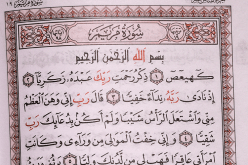 سُورَةُ مَرْيَمَ
بِسْمِ اللَّهِ الرَّحْمَٰنِ الرَّحِيمِ
كٓهيعٓصٓ ذِكْرُ رَحْمَتِ رَبِّكَ عَبْدَهُ زَكَرِيَّا
إِذْ نَادَىٰ رَبَّهُ نِدَاءً خَفِيًّا قَالَ رَبِّ إِنِّي وَهَنَ الْعَظْمُ
مِنِّي وَاشْتَعَلَ الرَّأْسُ شَيْبًا وَلَمْ أَكُن بِدُعَائِكَ رَبِّ
شَقِيًّا وَإِنِّي خِفْتُ الْمَوَالِيَ مِن وَرَاءِي وَكَانَتِ
امْرَأَتِي عَاقِرًا فَهَبْ لِي مِن لَّدُنكَ وَلِيًّا